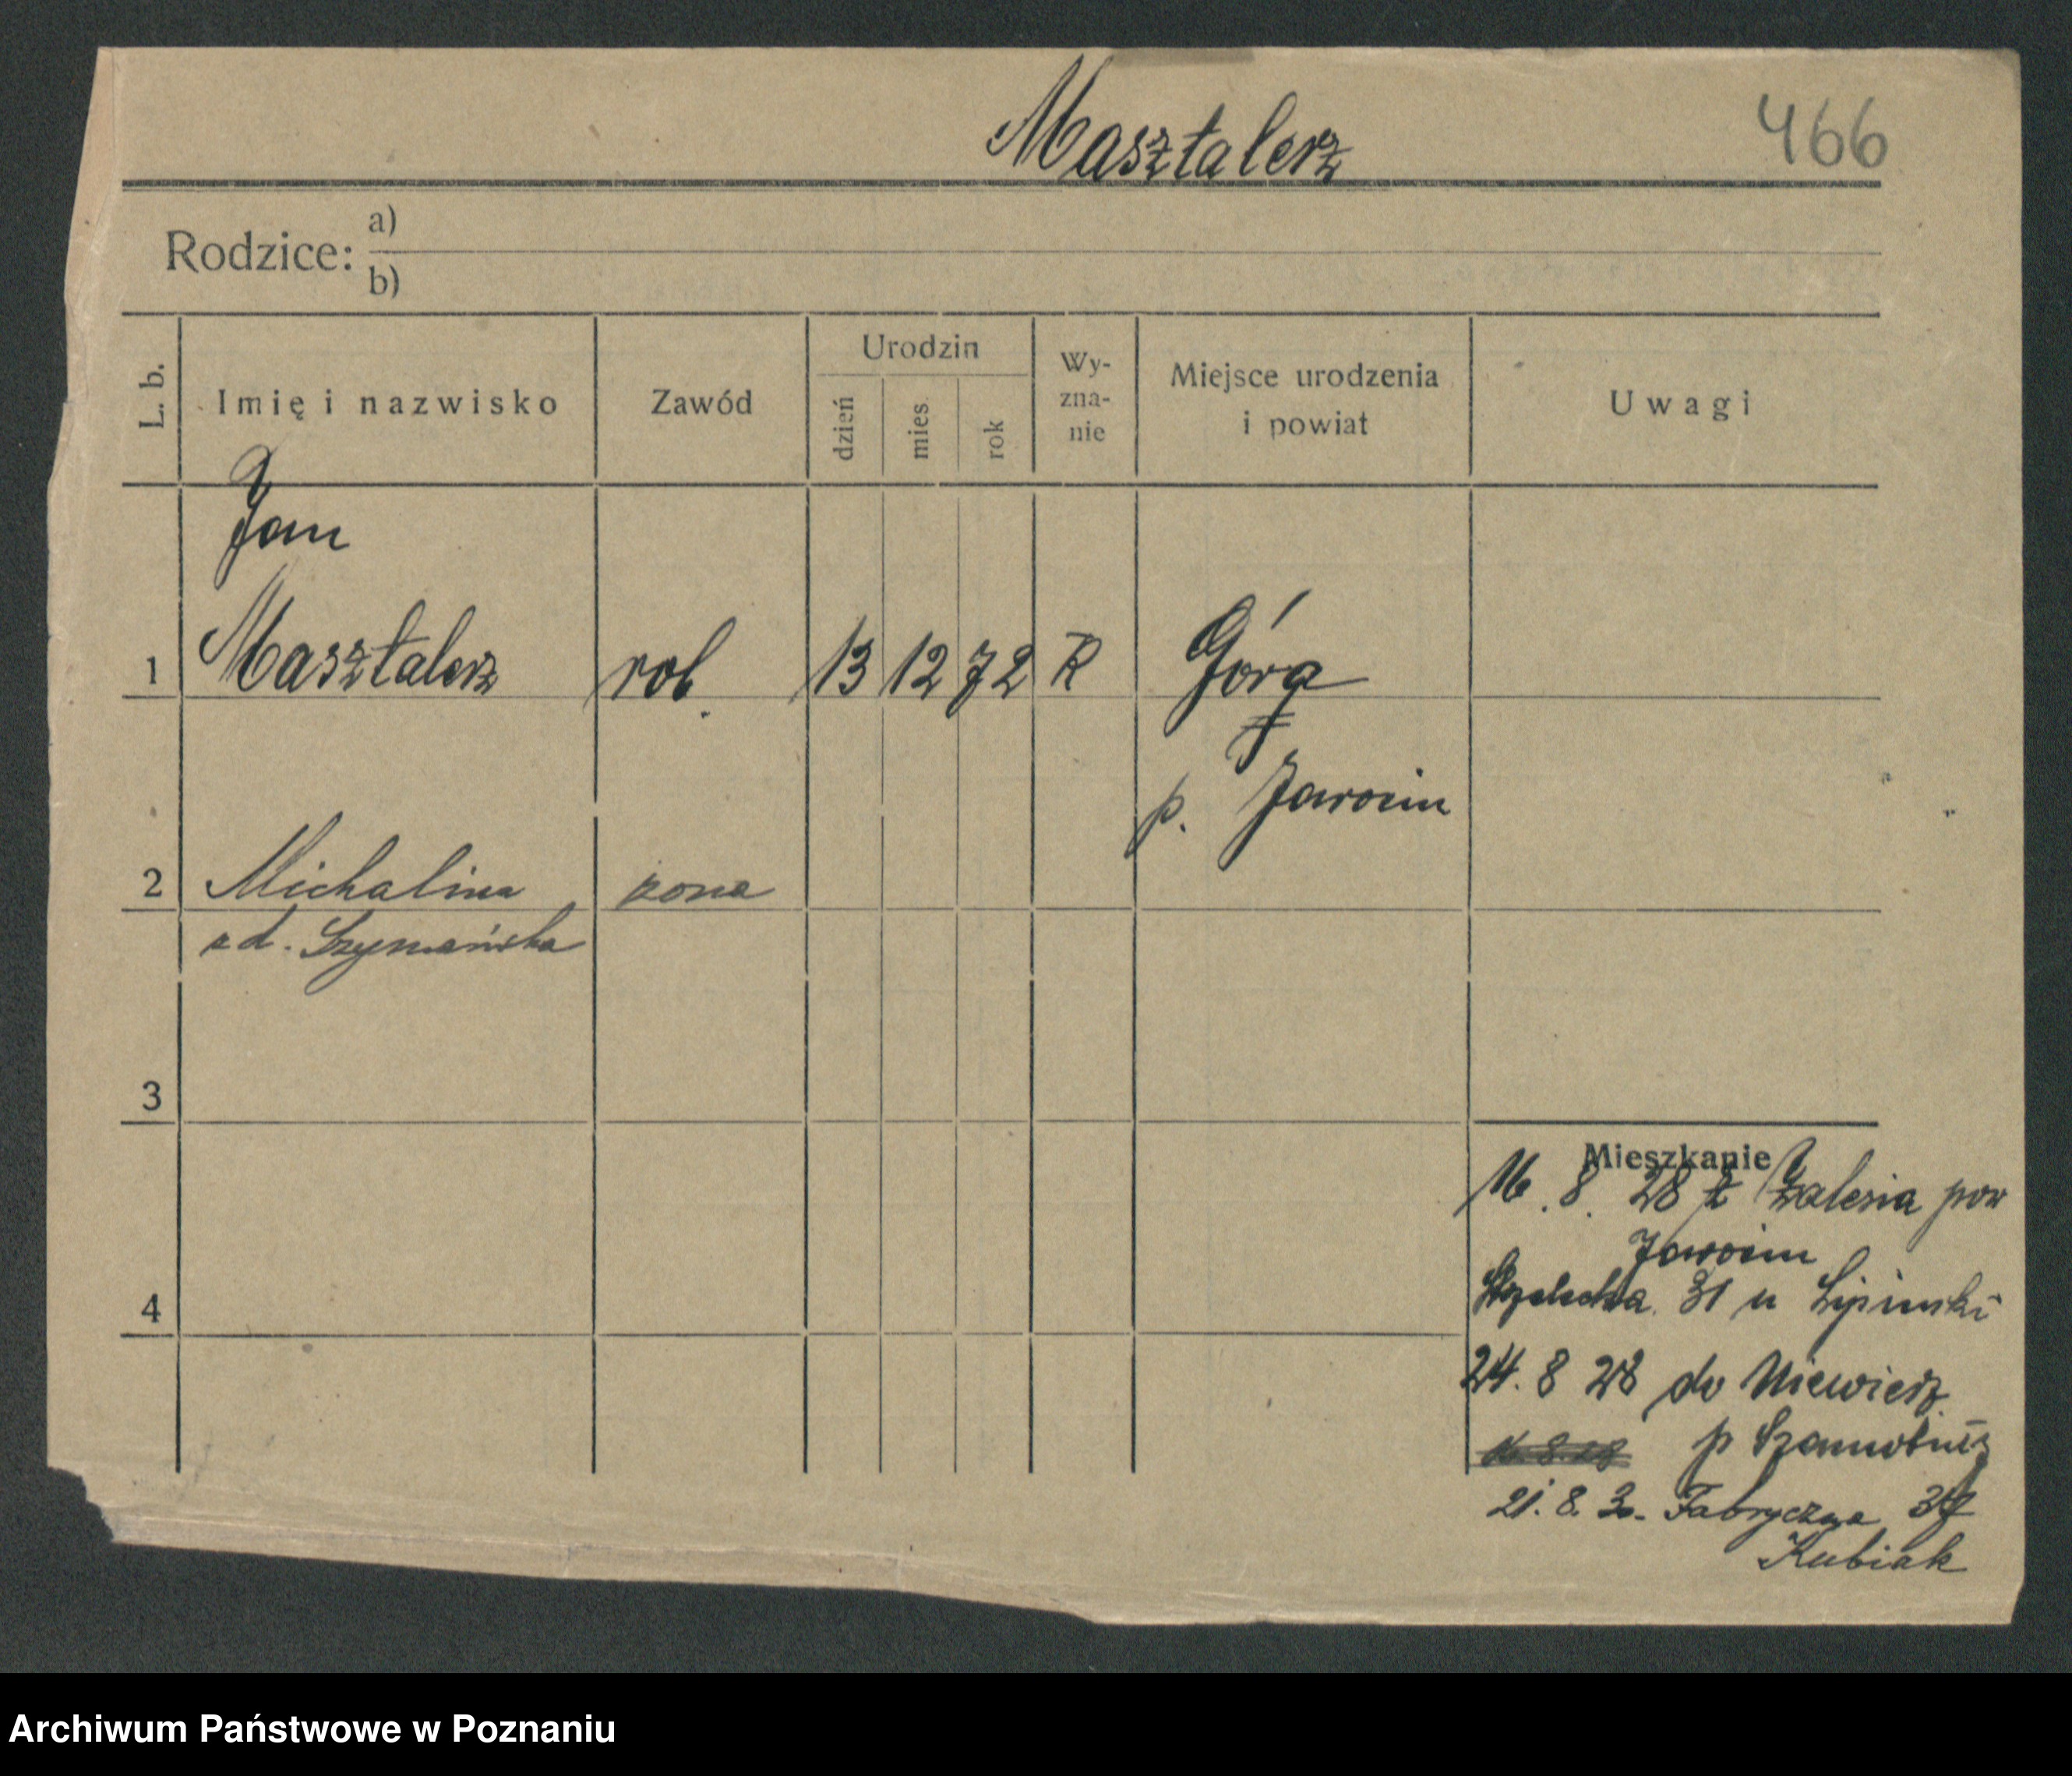 Masztalerz
466
Rodzice: a)
b)
L. b.
Imię i nazwisko
Zawód
Urodzin
dzień
mies.
rok
Wy-
zna-
nie
Miejsce urodzenia
i powiat
Uwagi
Jan
1 Masztalerz rob. 13 12 72 R Góra
p. Jarocin
2 Michalina żona
z d. Szymańska
3
4
Mieszkanie
16. 8. 28 z Zalesia pow
Jarocin
Strzelecka 31 u Lipinski
24. 8 28 do Niewierz
16.8.28 p Szamotuły
21. 8. 30. Fabryczna 37
Kubiak
Archiwum Państwowe w Poznaniu